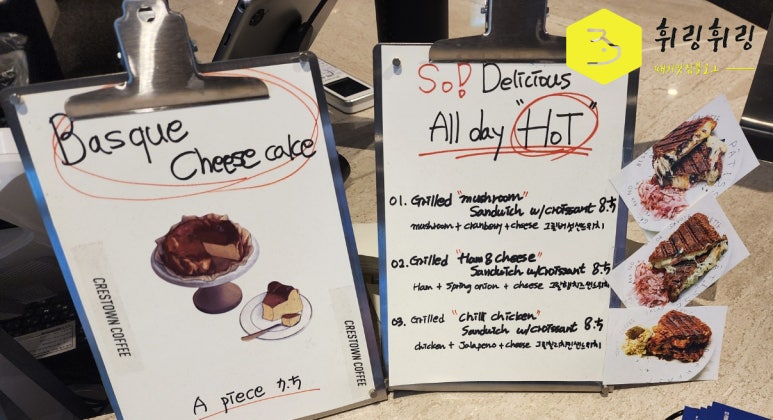 Basque
Cheese cake
CRESTOWN COFFEE
CRESTOWN COFFEE
A piece 7.5
So! Delicious
All day "HOT"
01. Grilled "mushroom"
Sandwich w/croissant 8.5
mushroom + cranberry + cheese 그릴버섯샌드위치
02. Grilled "Ham & cheese"
Sandwich w/croissant 8.5
Ham + Spring onion + cheese 그릴햄치즈샌드위치
03. Grilled "Chilli chicken"
Sandwich w/croissant 8.5
chicken + Jalapeno + cheese 그릴칠리치킨샌드위치
휘링휘링